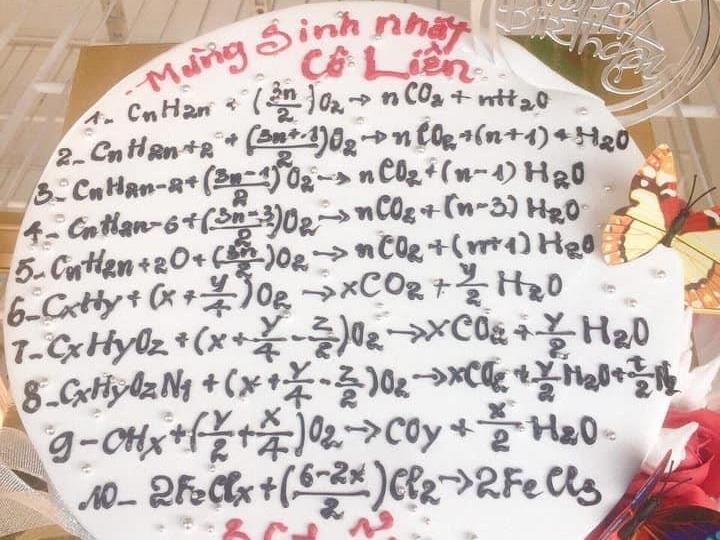 Happy Birthday
Mừng Sinh nhật
Cô Liên
1- CnH2n + (3n/2)O2 → nCO2 + nH2O
2- CnH2n+2 + (3n+1/2)O2 → nCO2 + (n+1) + H2O
3- CnH2n-2 + (3n-1/2)O2 → nCO2 + (n-1) H2O
4- CnH2n-6 + (3n-3/2)O2 → nCO2 + (n-3) H2O
5- CnH2n+2O + (3n/2)O2 → nCO2 + (n+1) H2O
6- CxHy + (x + y/4)O2 → xCO2 + y/2 H2O
7- CxHyOz + (x + y/4 - z/2)O2 → xCO2 + y/2 H2O
8- CxHyOzNt + (x + y/4 - z/2)O2 → xCO2 + y/2 H2O + t/2 N2
9- CHx + (y/2 + x/4)O2 → COy + x/2 H2O
10- 2FeClx + (6-2x/2)Cl2 → 2FeCl3